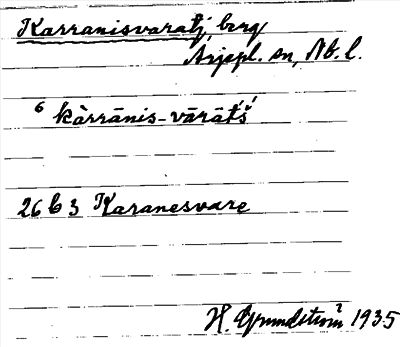 Karranisvaratj, berg
Arjepl. sn, Nb. l.
6 kàrrānis-vārāt́š́
26 b 3 Karanesvare
H. Grundström 1935